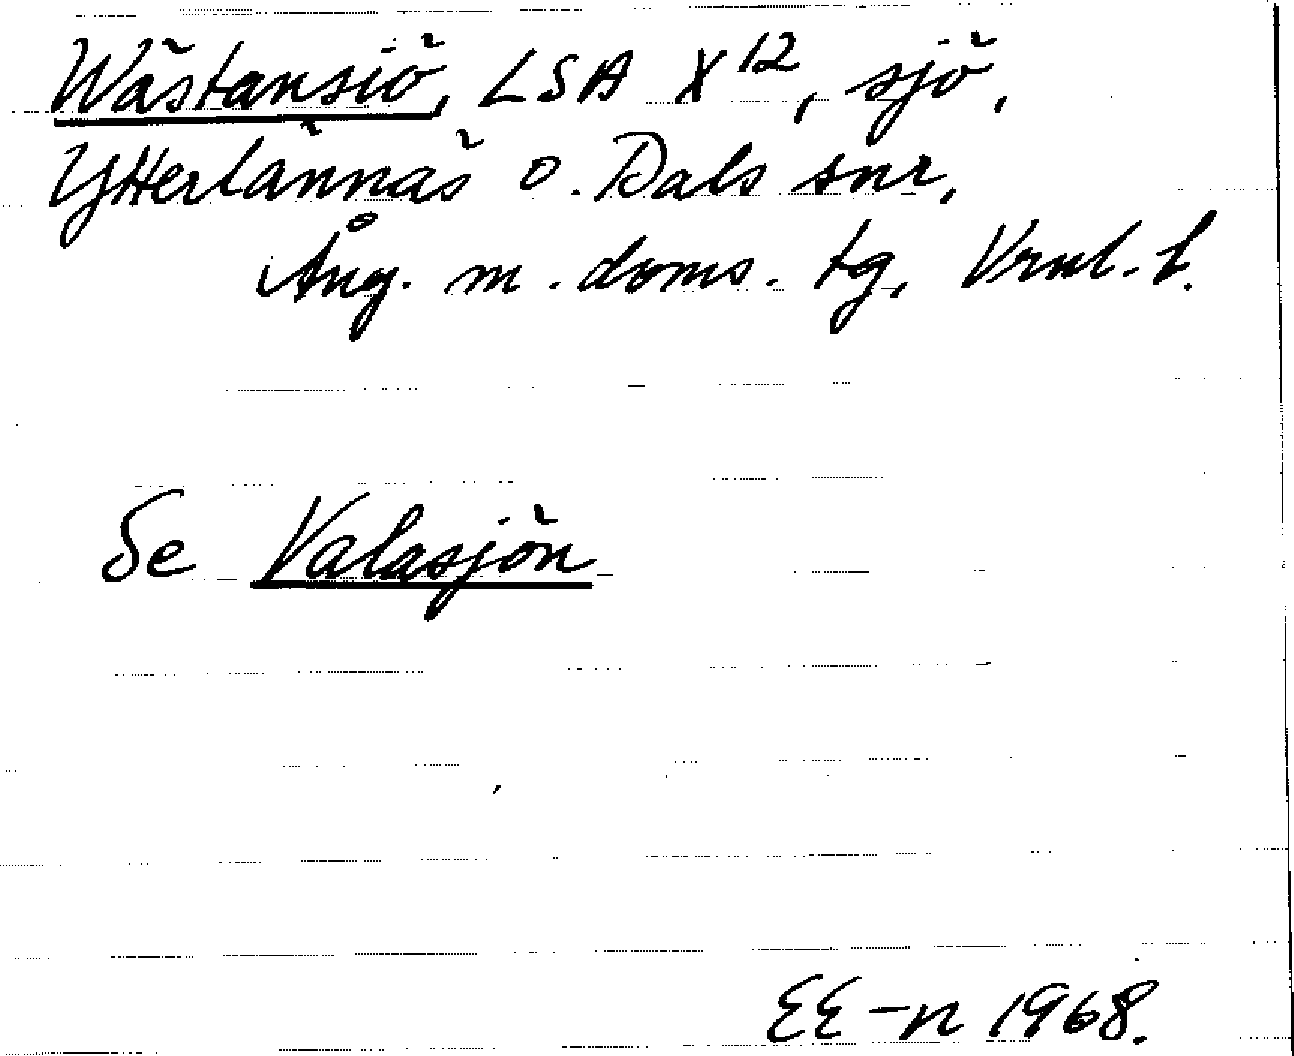 Wästansiö, LSA X 12, sjö,
Ytterlännäs o. Dals snr,
Ång. m. doms. tg, Vrnl. l.
Se Valasjön
EE-n 1968.